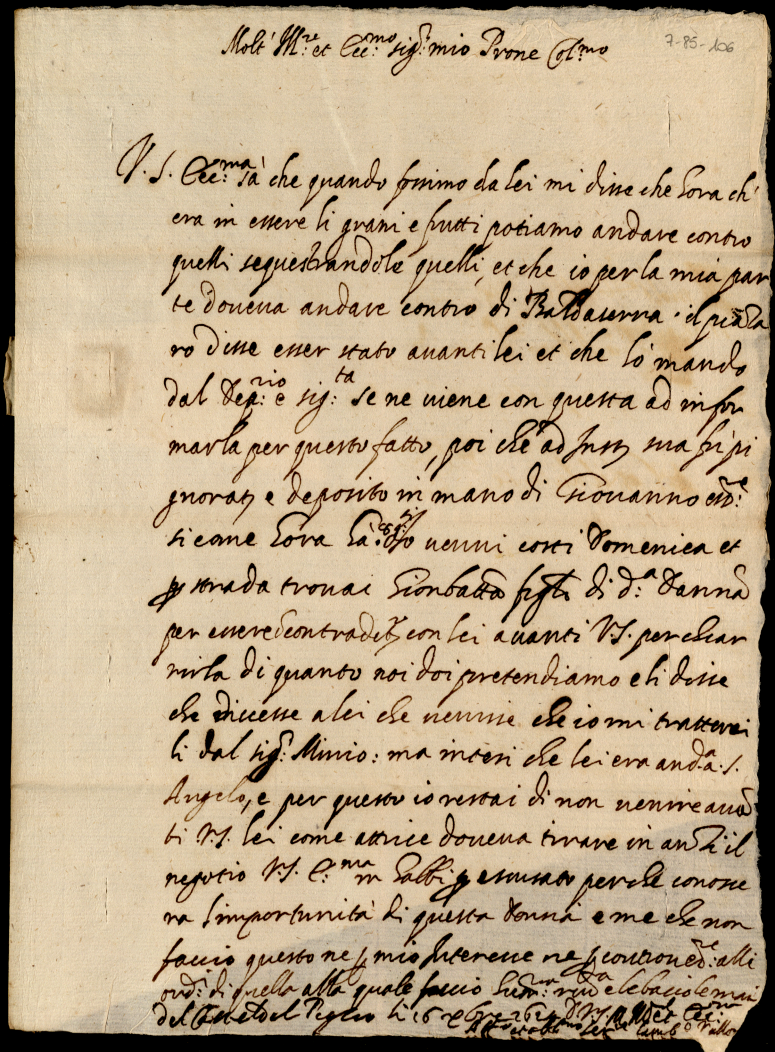 7-85-106
Molt' Ill.re et Ecc.mo sig.r mio Prone Col.mo
V. S. Ecc.ma sà che quando fossimo da lei mi disse che hora ch'
era in essere li grani e frutti potiamo andare contro
quelli sequestrandole quelli, et che io per la mia par
te doveva andare contro di Baldaserra il
ro disse esser stato avanti lei et che lo mando
dal e sig.ta se ne viene con questa ad infor
marla per questo fatto, poi che ad sua fù pi
e deposito in mano di Giovanno
si come hora hà venni costi Domenica et
strada trovai Gionbatta di d.a Danna
per essere con lei avanti V.S. per chiar
nirla di quanto noi doi pretendiamo e li disse
che dicesse a lei che venisse che io mi tratterei
li dal sig.r Minio: ma intesi che lei era and.a a S.
Angelo, e per questo io restai di non venire avā
ti V.S. lei come attrice doveva tirare in anzi il
negotio V.S. E.ma m' habbi escusato perche conosce
ra l'importunità di questa donna e me che non
faccio questo ne mio Interesse ne alli
ord.i di quella alla quale faccio e le bacio le mani
Del Castel del Piglio li 16